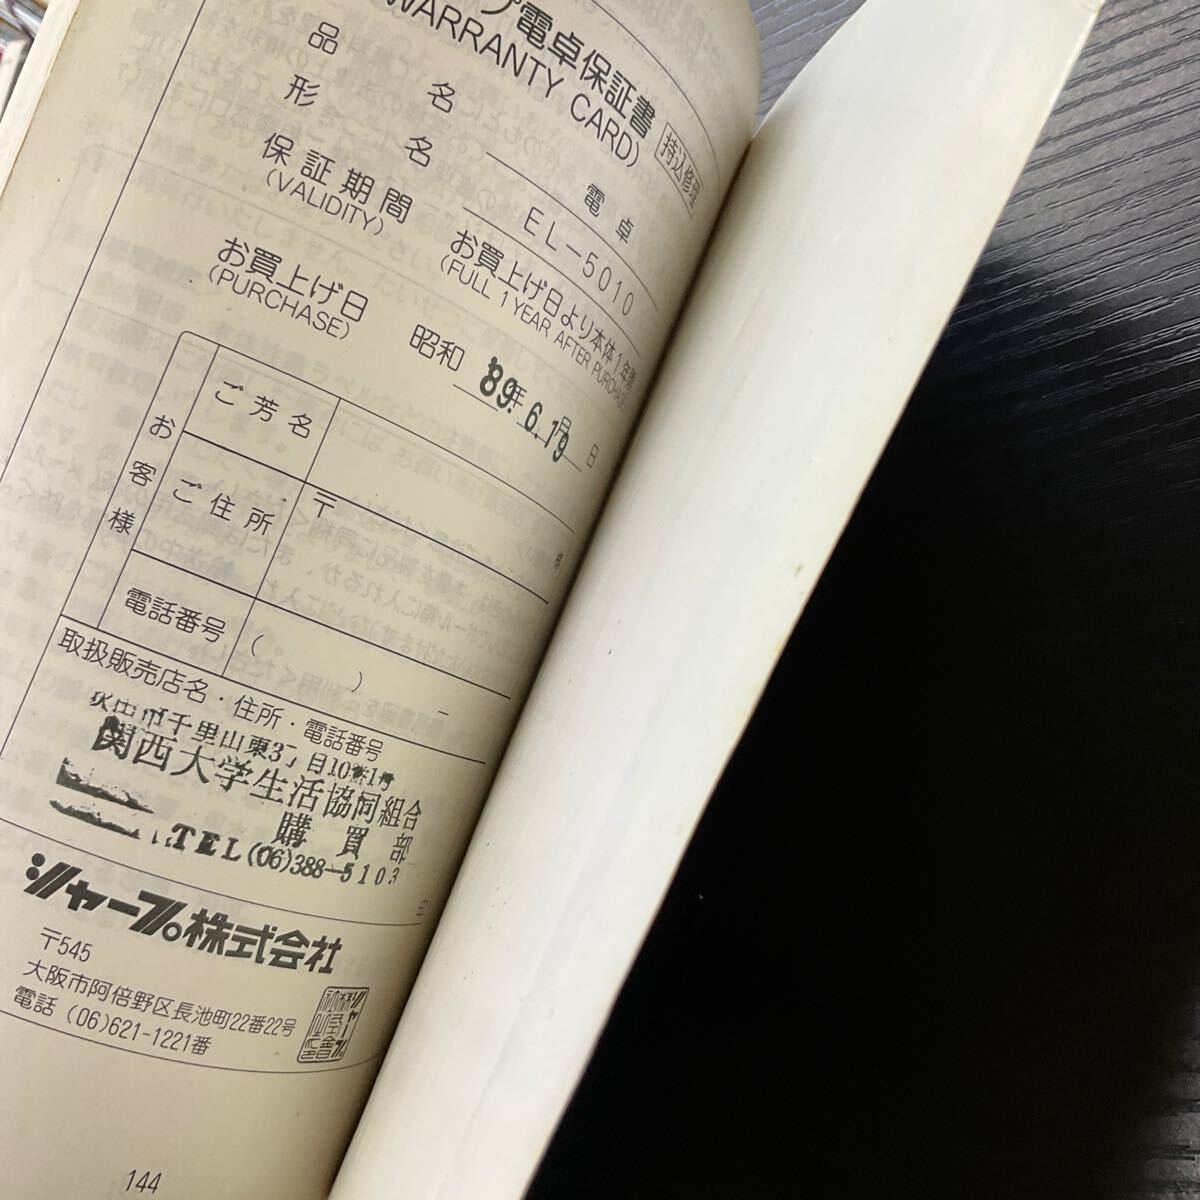 電卓保証書 持込修理
WARRANTY CARD)
品 名 電 卓
形 名 EL-5010
保証期間 お買上げ日より本体1年間
(VALIDITY) (FULL 1 YEAR AFTER PURCHASE)
お買上げ日 昭和 89.年 6.月 19 日
(PURCHASE)
お客様
ご芳名 様
ご住所 〒
電話番号 ( ) −
取扱販売店名・住所・電話番号
吹田市千里山東3丁目10番1号
関西大学生活協同組合
購買部
TEL(06)388-5103
シャープ株式会社
〒545
大阪市阿倍野区長池町22番22号
電話 (06)621-1221番
144